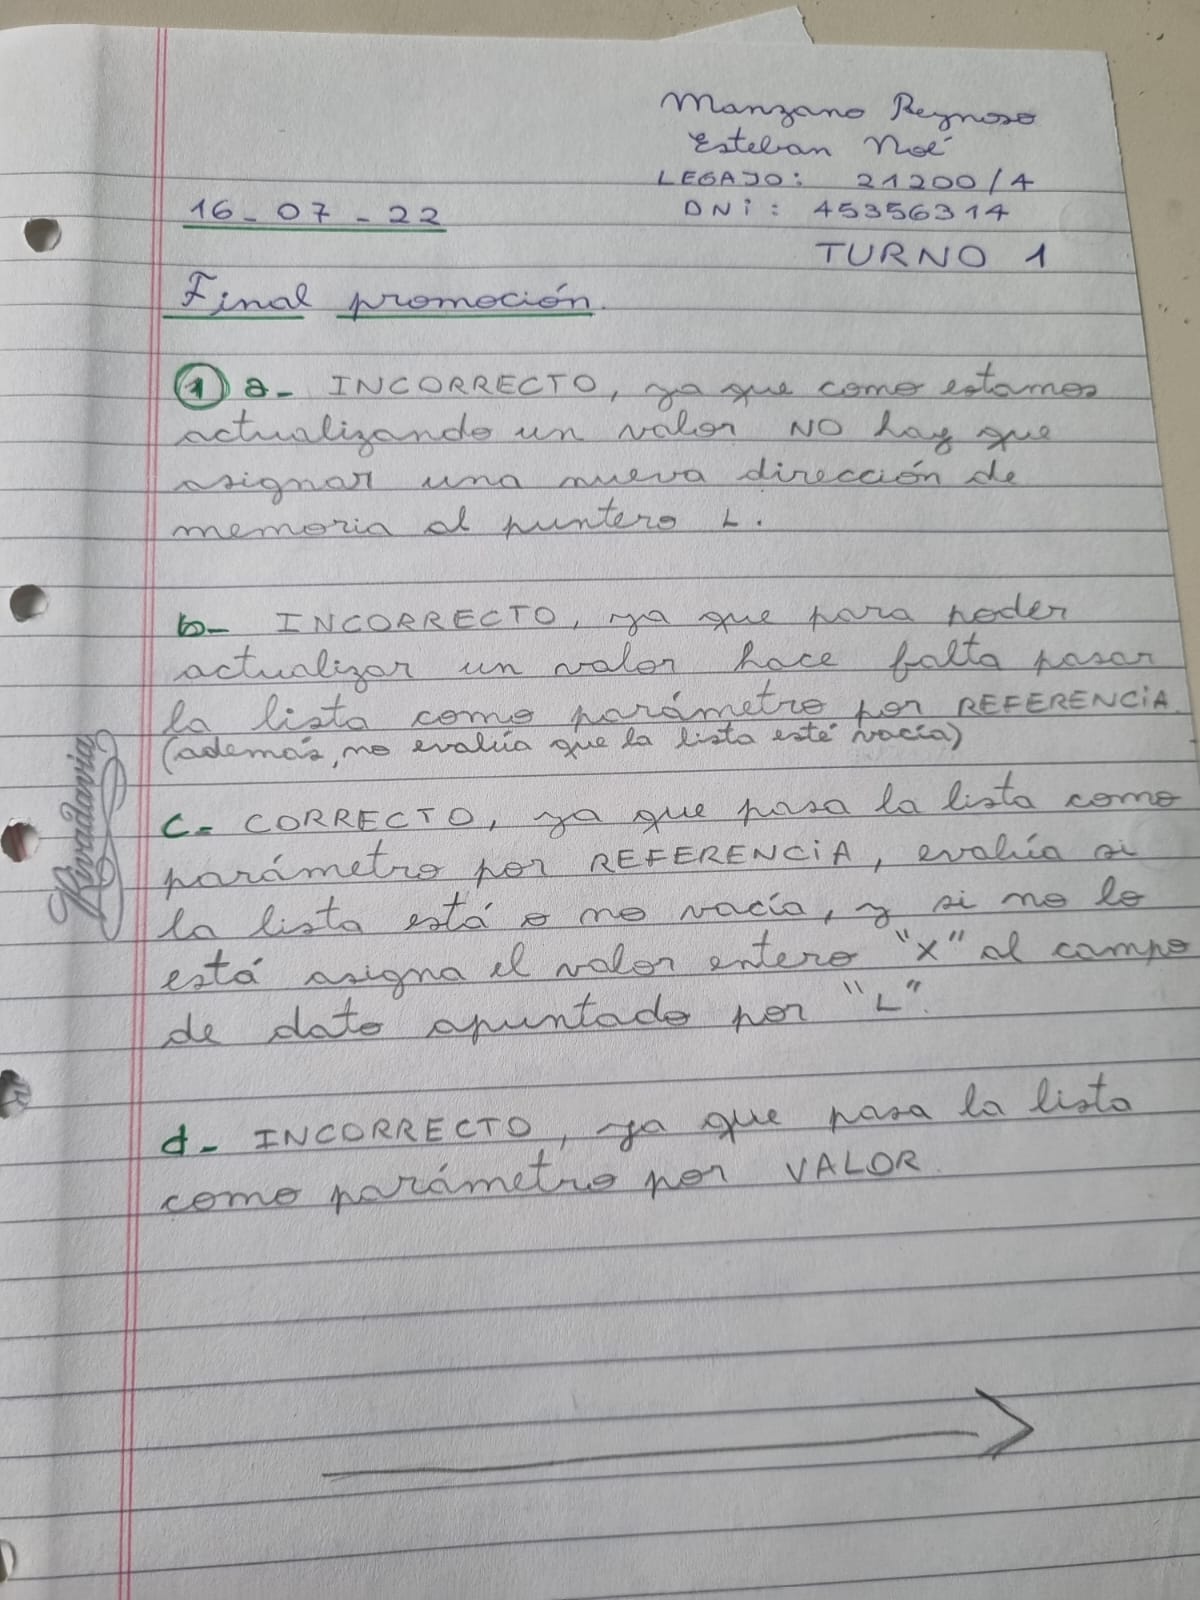 Manzano Reynoso
Esteban Noé
LEGAJO: 21200/4
16-07-22
DNi: 45356314
TURNO 1
Final promoción.
1 a- INCORRECTO, ya que como estamos
actualizando un valor NO hay que
asignar una nueva dirección de
memoria al puntero L.
b- INCORRECTO, ya que para poder
actualizar un valor hace falta pasar
la lista como parámetro por REFERENCiA.
(además, no evalúa que la lista esté vacía)
c- CORRECTO, ya que pasa la lista como
parámetro por REFERENCiA, evalúa si
la lista está o no vacía, y si no lo
está asigna el valor entero "X" al campo
de dato apuntado por "L".
d- INCORRECTO, ya que pasa la lista
como parámetro por VALOR.
Rivadavia